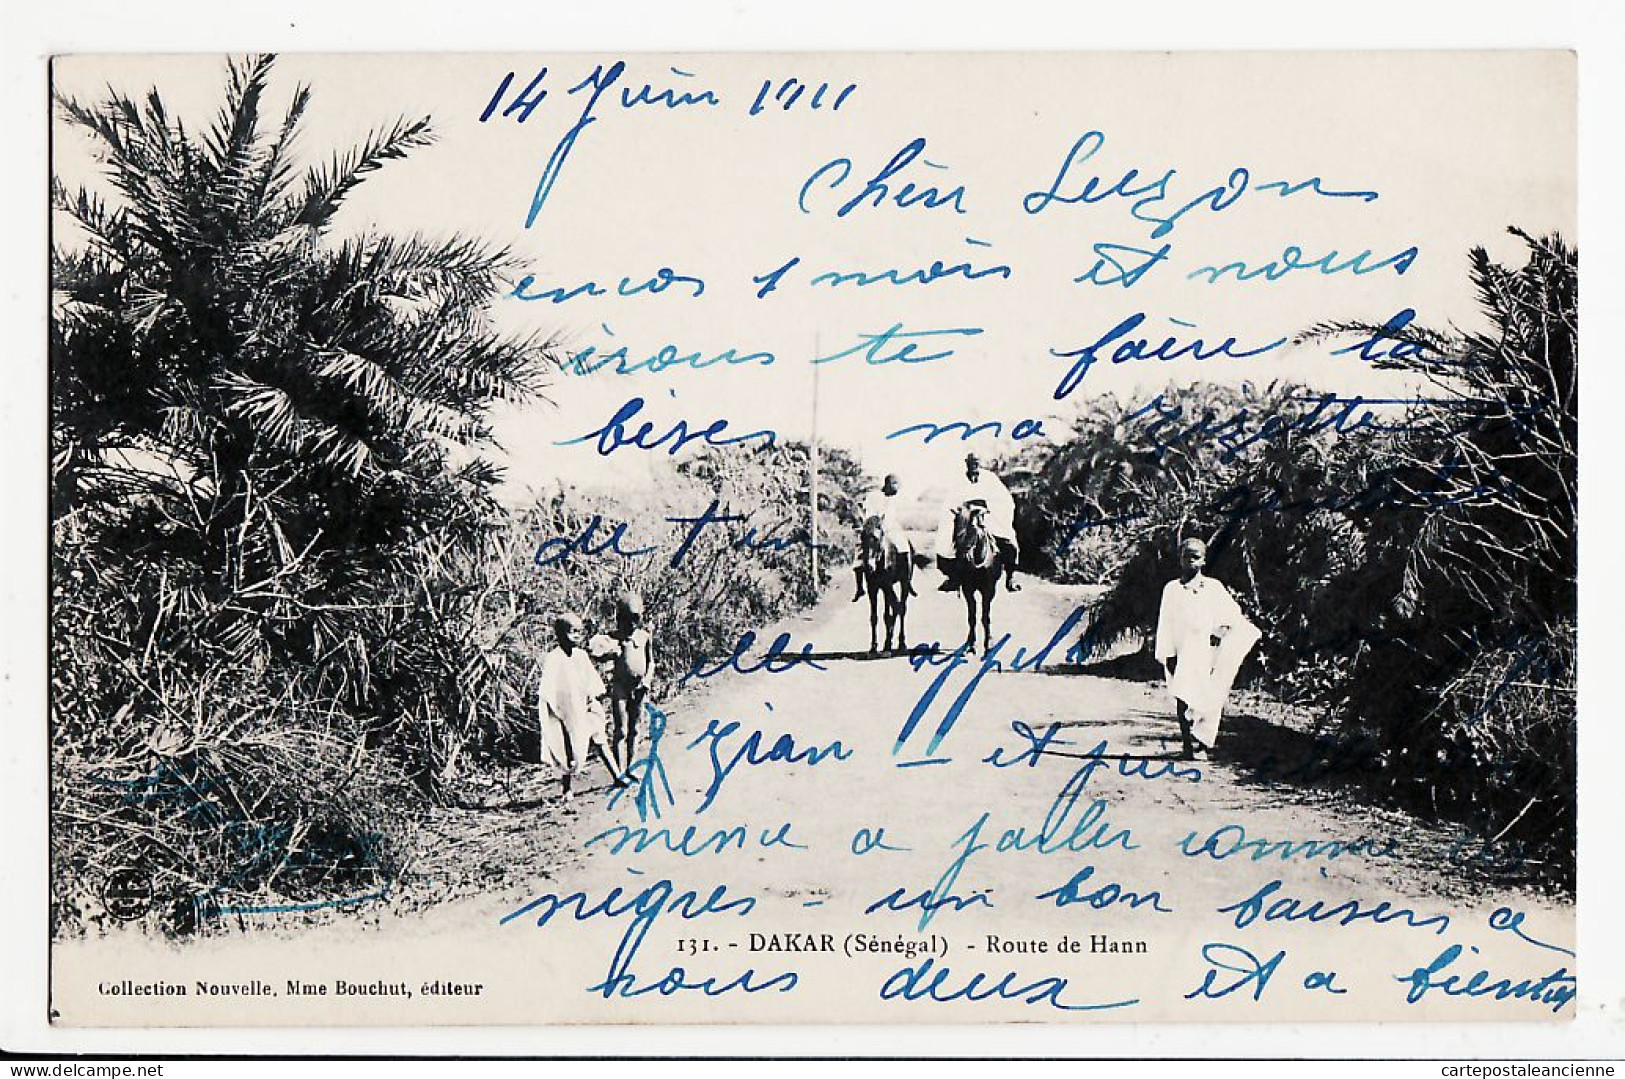 14 Juin 1911
Chère Suzon
encor 1 mois et nous
irons te faire la
bises ma zizette
de t'en
elle appele
Zian - et puis elle
mence a parler comme les
nègres - un bon baisers a
nous deux et a bientot
131. - DAKAR (Sénégal) - Route de Hann
Collection Nouvelle, Mme Bouchut, éditeur
delcampe.net
cartepostaleancienne